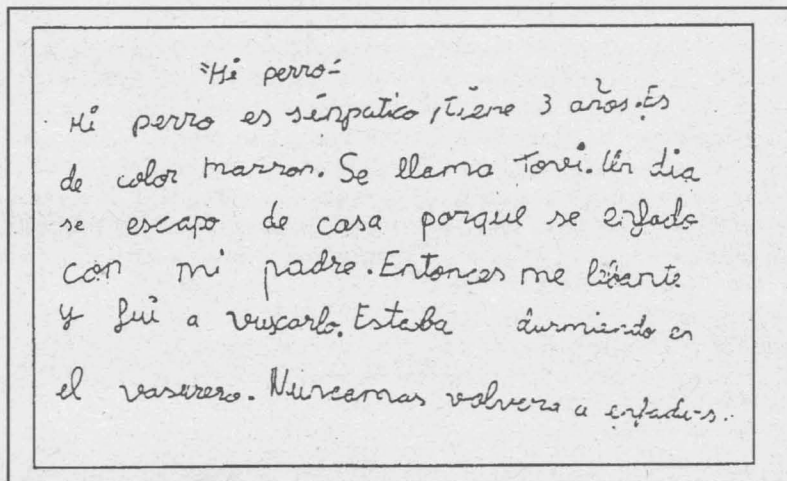 "Mi perro"
Mi perro es sinpatico, tiene 3 años. Es
de color marron. Se llama Tovi. Un dia
se escapo de casa porque se enfado
con mi padre. Entonces me libante
y fui a vuscarlo. Estaba durmiendo en
el vasurero. Nuncamas volvera a